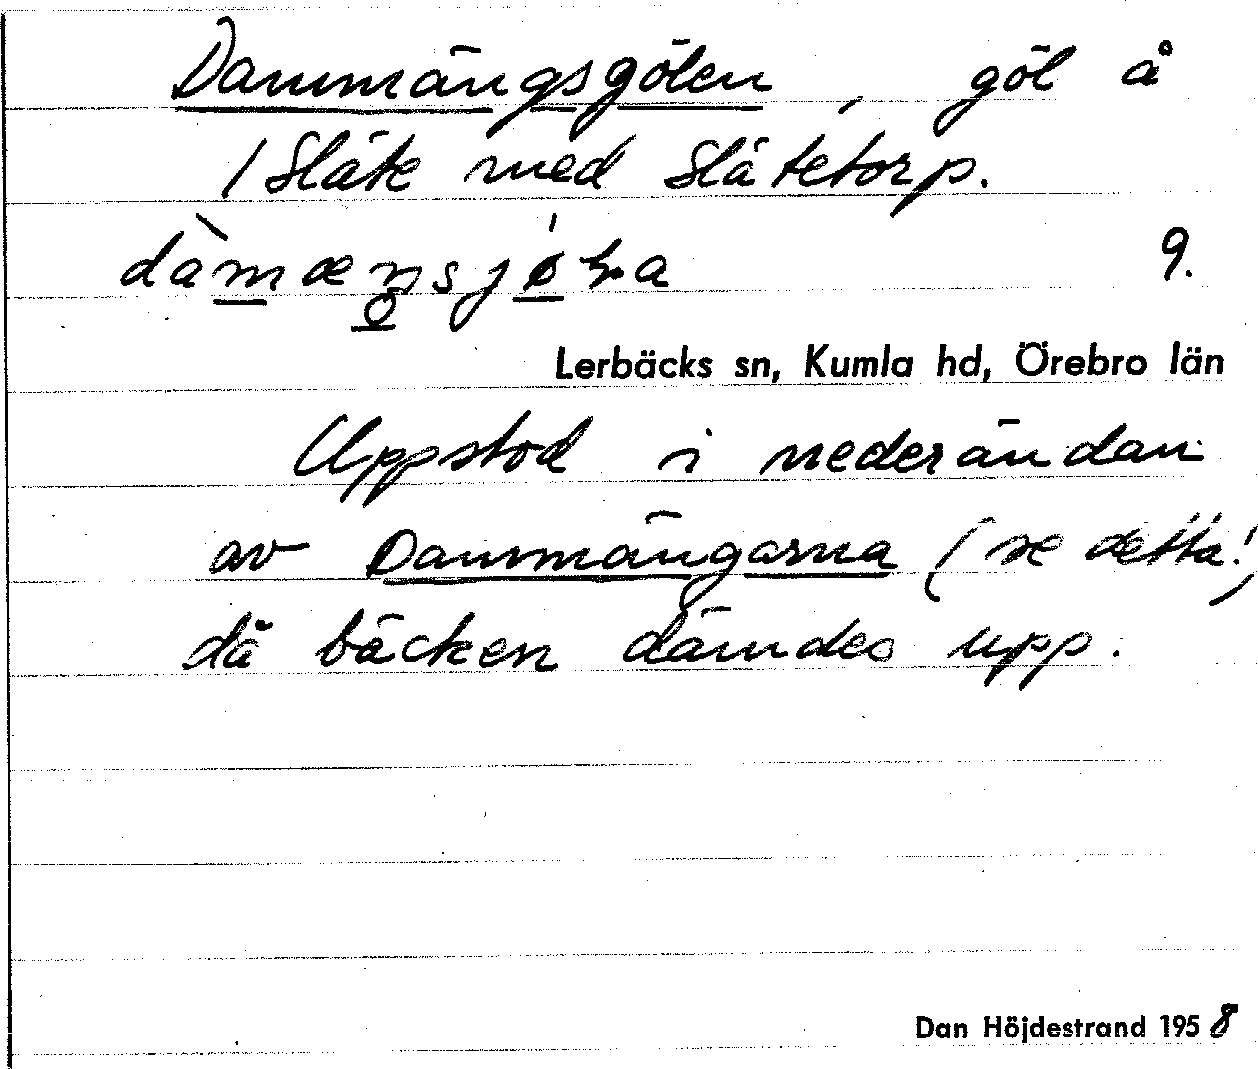 Dammängsgölen, göl å
/ Släte med Slätetorp.
9.
Lerbäcks sn, Kumla hd, Örebro län
Uppstod i nederändan
av Dammängarna (se detta!)
då bäcken dämdes upp.
Dan Höjdestrand 1958